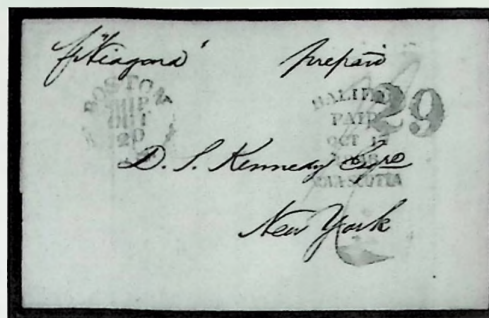 p "Niagara"
prepaid
BOSTON
SHIP
OCT
20
HALIFAX
PAID
OCT 17
NOVA-SCOTIA
29
D. S. Kennedy Esqre
New York